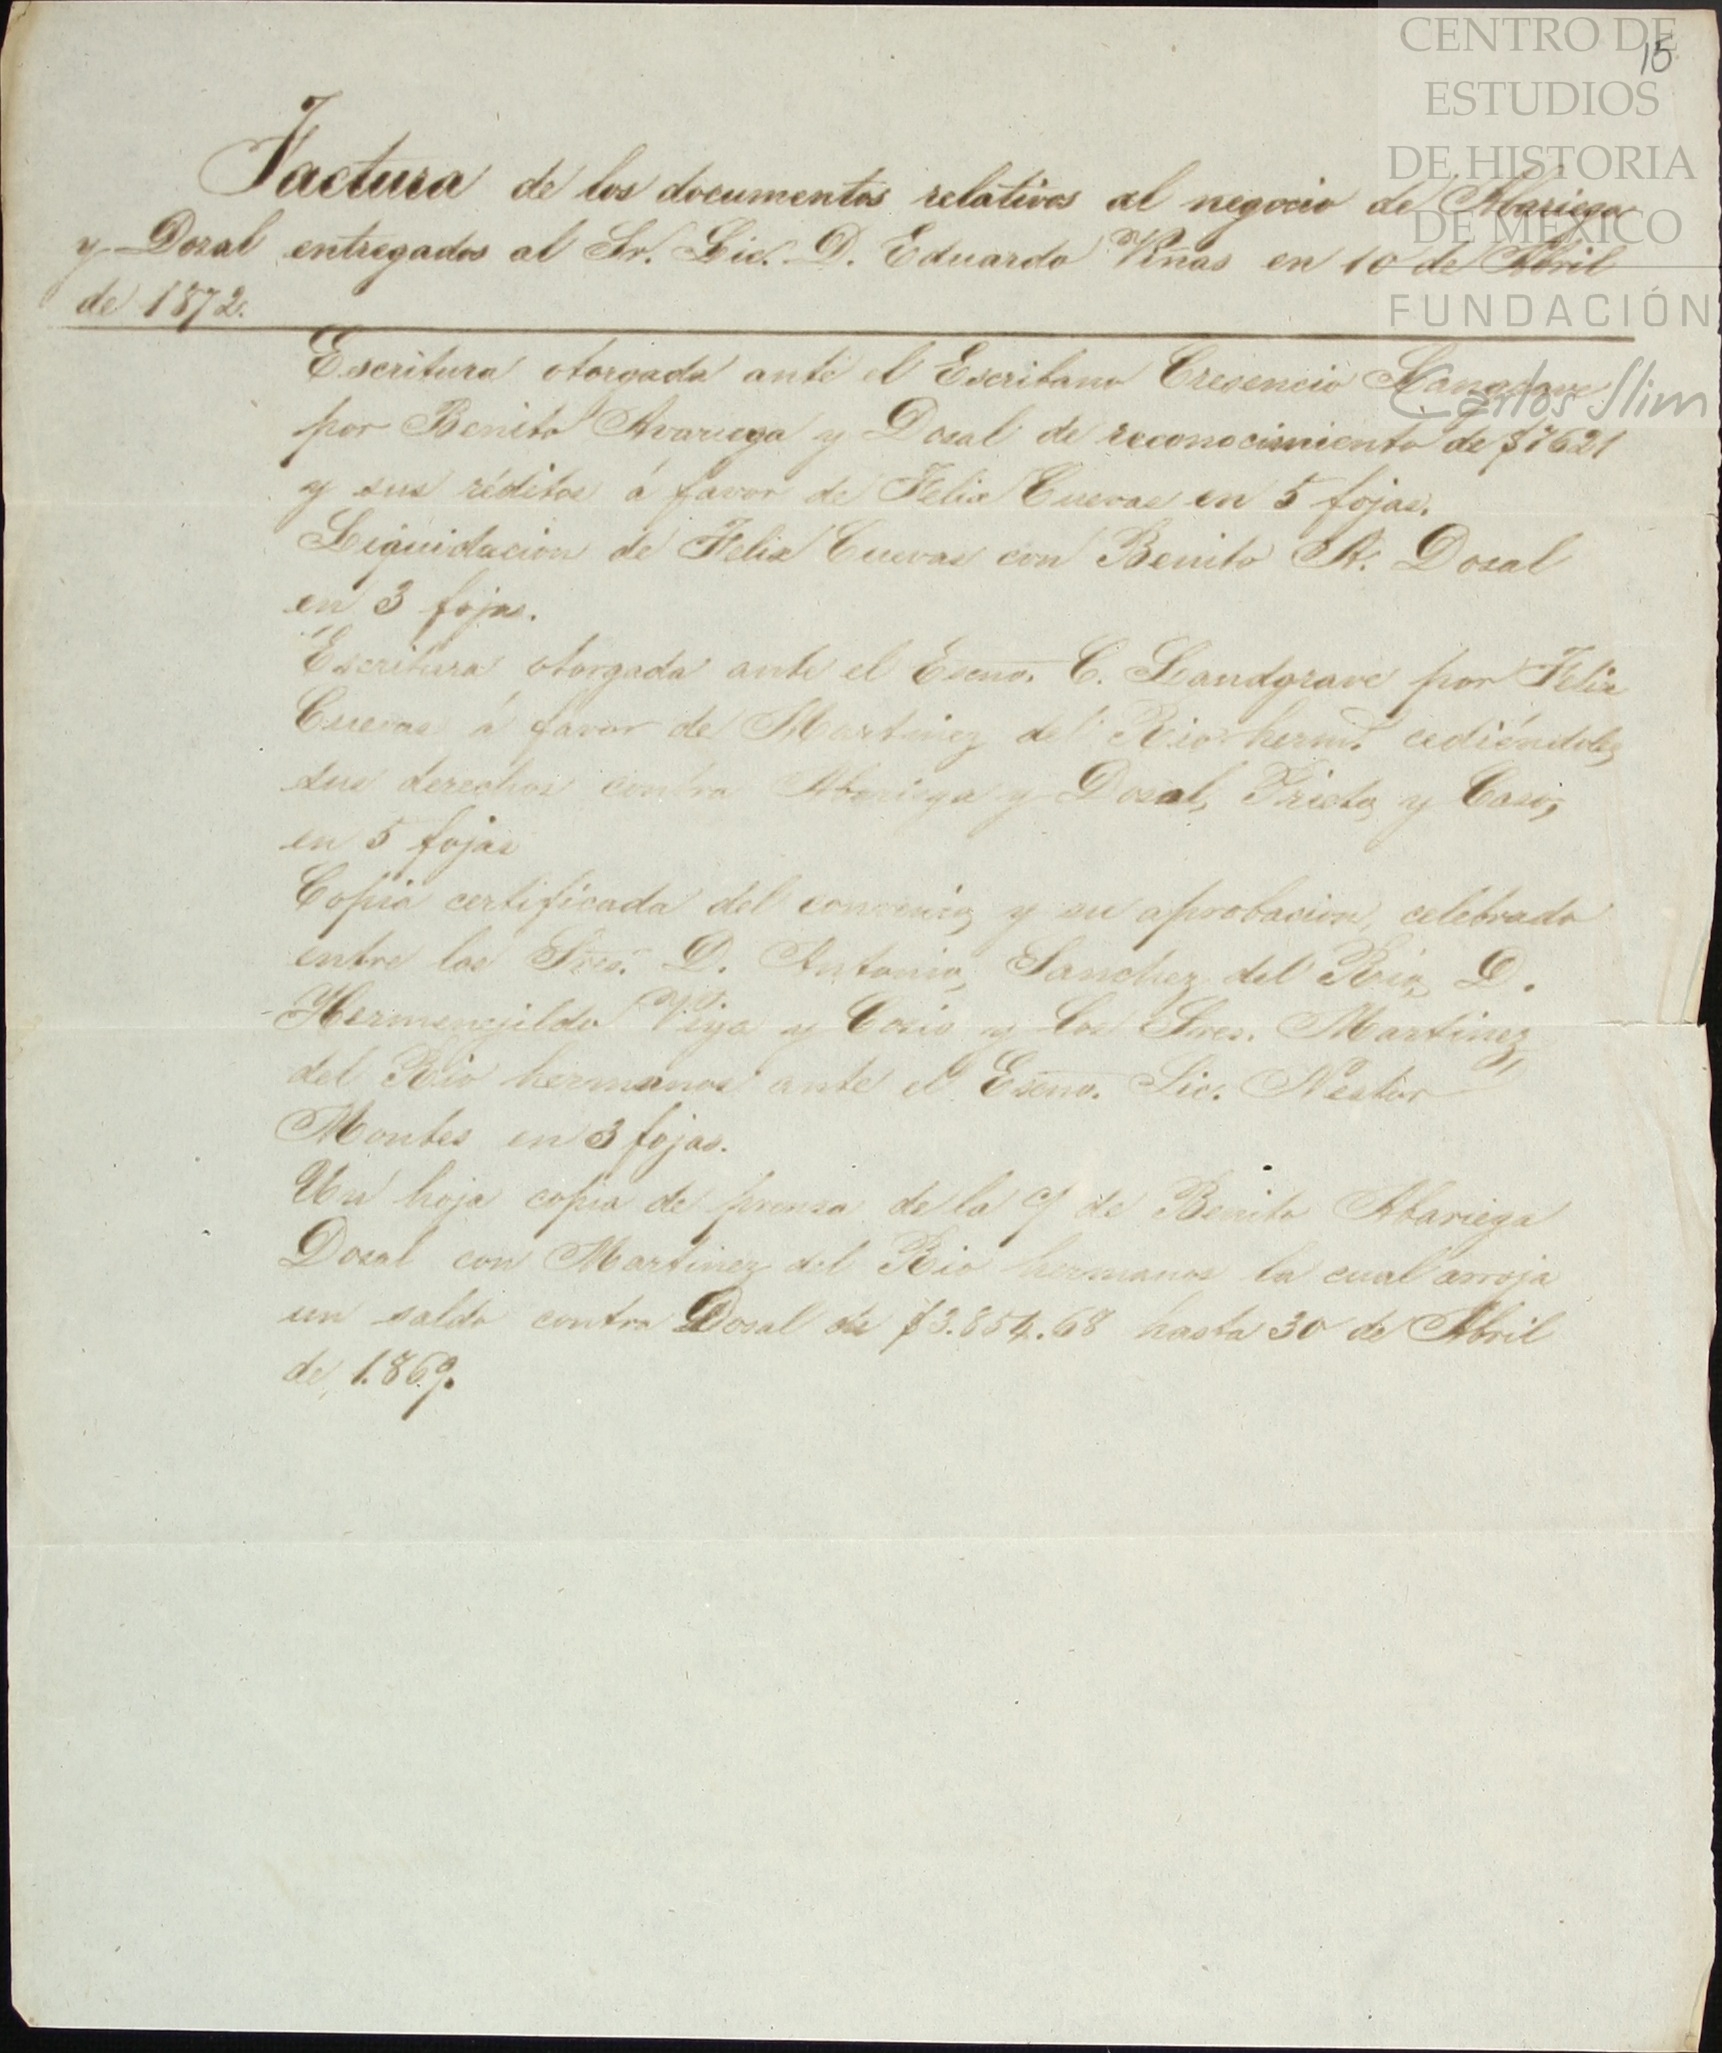 15
CENTRO DE
ESTUDIOS
DE HISTORIA
DE MÉXICO
FUNDACIÓN
Carlos Slim
Factura de los documentos relativos al negocio de Abariega
y Dosal entregados al Sr. Lic. D. Eduardo Viñas en 10 de Abril
de 1872.
Escritura otorgada ante el Escribano Cresencio Landgrave
por Benito Avariega y Dosal de reconocimiento de $7621
y sus réditos á favor de Felix Cuevas en 5 fojas.
Liquidacion de Felix Cuevas con Benito A. Dosal
en 3 fojas.
Escritura otorgada ante el Escno. C. Landgrave por Felix
Cuevas á favor de Martinez del Rio herms. cediéndoles
sus derechos contra Abariega y Dosal, Prieto y Caso,
en 5 fojas
Copia certificada del convenio, y su aprobacion, celebrado
entre los Sres. D. Antonio, Sanchez del Rio, D.
Hermenejildo Viya y Cosio y los Sres. Martinez
del Rio hermanos ante el Escno. Lic. Nestor
Montes en 3 fojas.
Un hoja copia de prensa de la de Benito Abariega
Dosal con Martinez del Rio hermanos la cual arroja
un saldo contra Dosal de $3.854.68 hasta 30 de Abril
de 1.869.